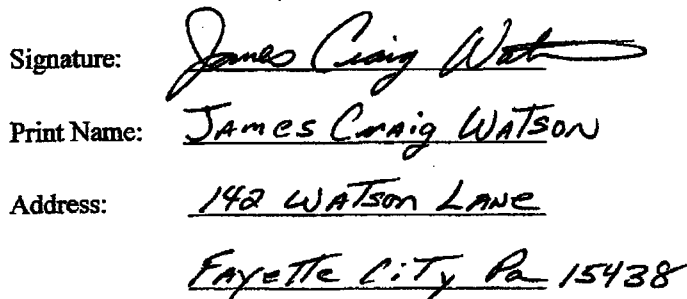 Signature: James Craig Watson
Print Name: JAmes CrAig WATSON
Address: 142 WATSon LANe
FAyeTTe CiTy Pa 15438